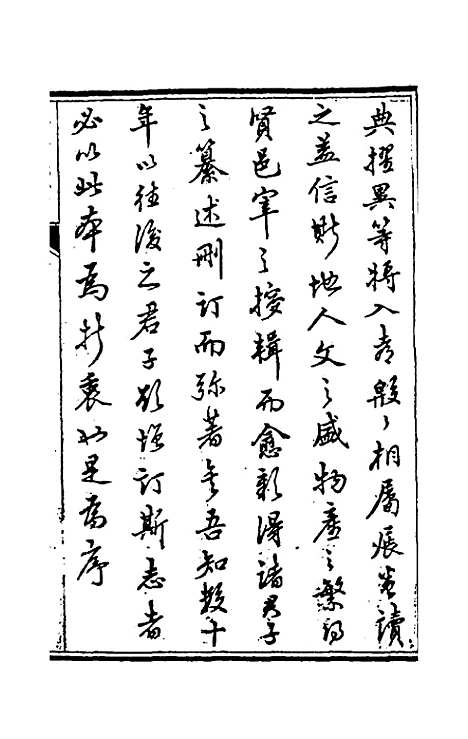 典擢異等将入都殷〻相屬展卷讀
之蓋信斯地人文之盛物產之繁得
賢邑宰之搜輯而愈彰得諸君子
之纂述刪訂而弥著矣吾知數十
年以往後之君子欲增訂斯志者
必以此本爲折衷也是爲序